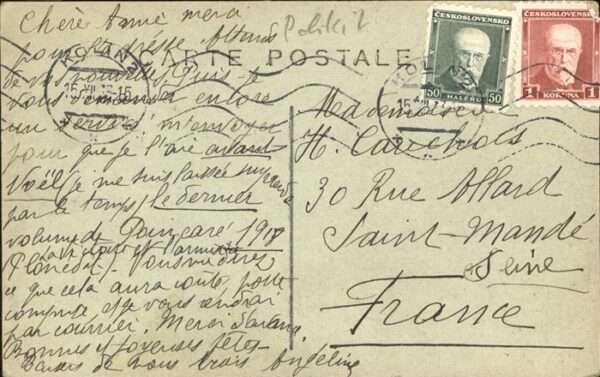 Chère Amie merci
pour la
CARTE POSTALE
de vos nouvelles Puis-je
vous demander encore
un service m'envoyer
pour que je l'aie avant
Noël (je me suis laissée
par le temps) le dernier
volume de Poincaré 1918
(Plon éd). Vous me direz
ce que cela aura coûté, poste
comprise et je vous
par courrier. Merci d'avance
Bonnes et joyeuses fêtes
Baisers de nous trois Angéline
ČESKOSLOVENSKO
50 HALÉŘŮ 50
ČESKOSLOVENSKO
1 KORUNA 1
KOLÍN 2
Mademoiselle
H. Cauchois
30 Rue Allard
Saint-Mandé
Seine
France